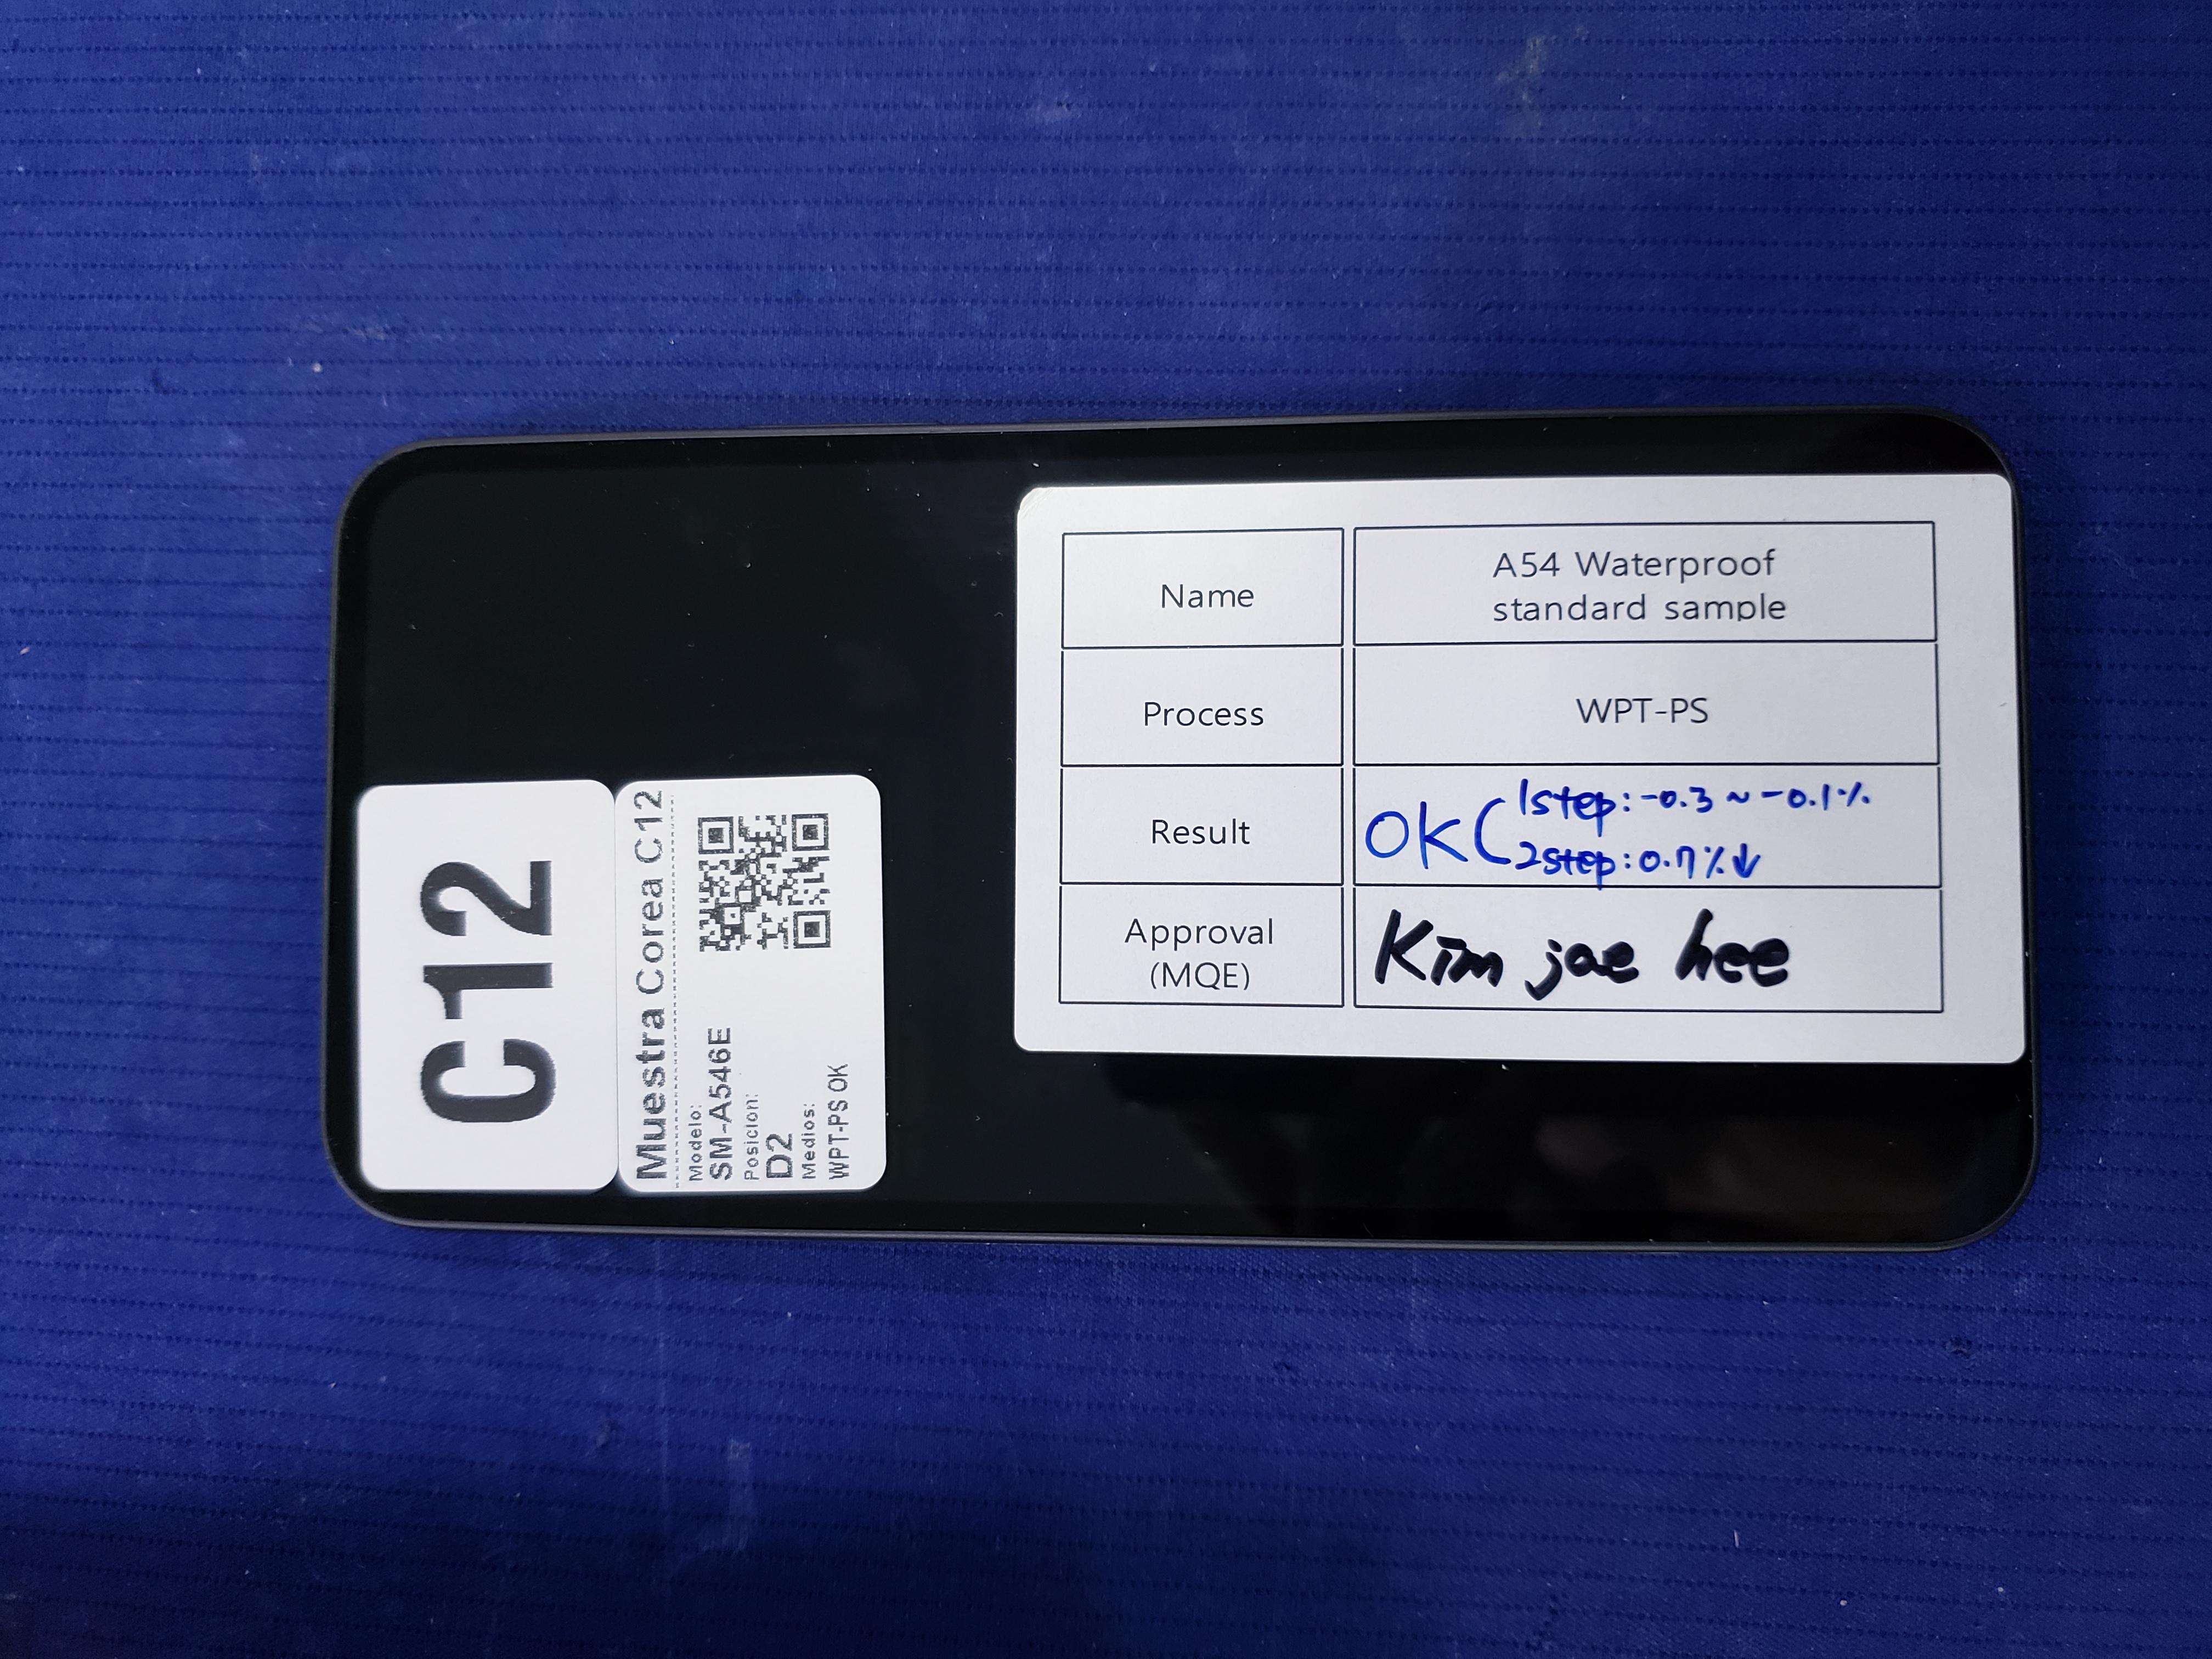 C12
Muestra Corea C12
Modelo:
SM-A546E
Posicion:
D2
Medios:
WPT-PS OK
Name
A54 Waterproof
standard sample
Process
WPT-PS
Result
OK ( 1step: -0.3 ~ -0.1%
2step: 0.7%↓
Approval
(MQE)
Kim jae hee